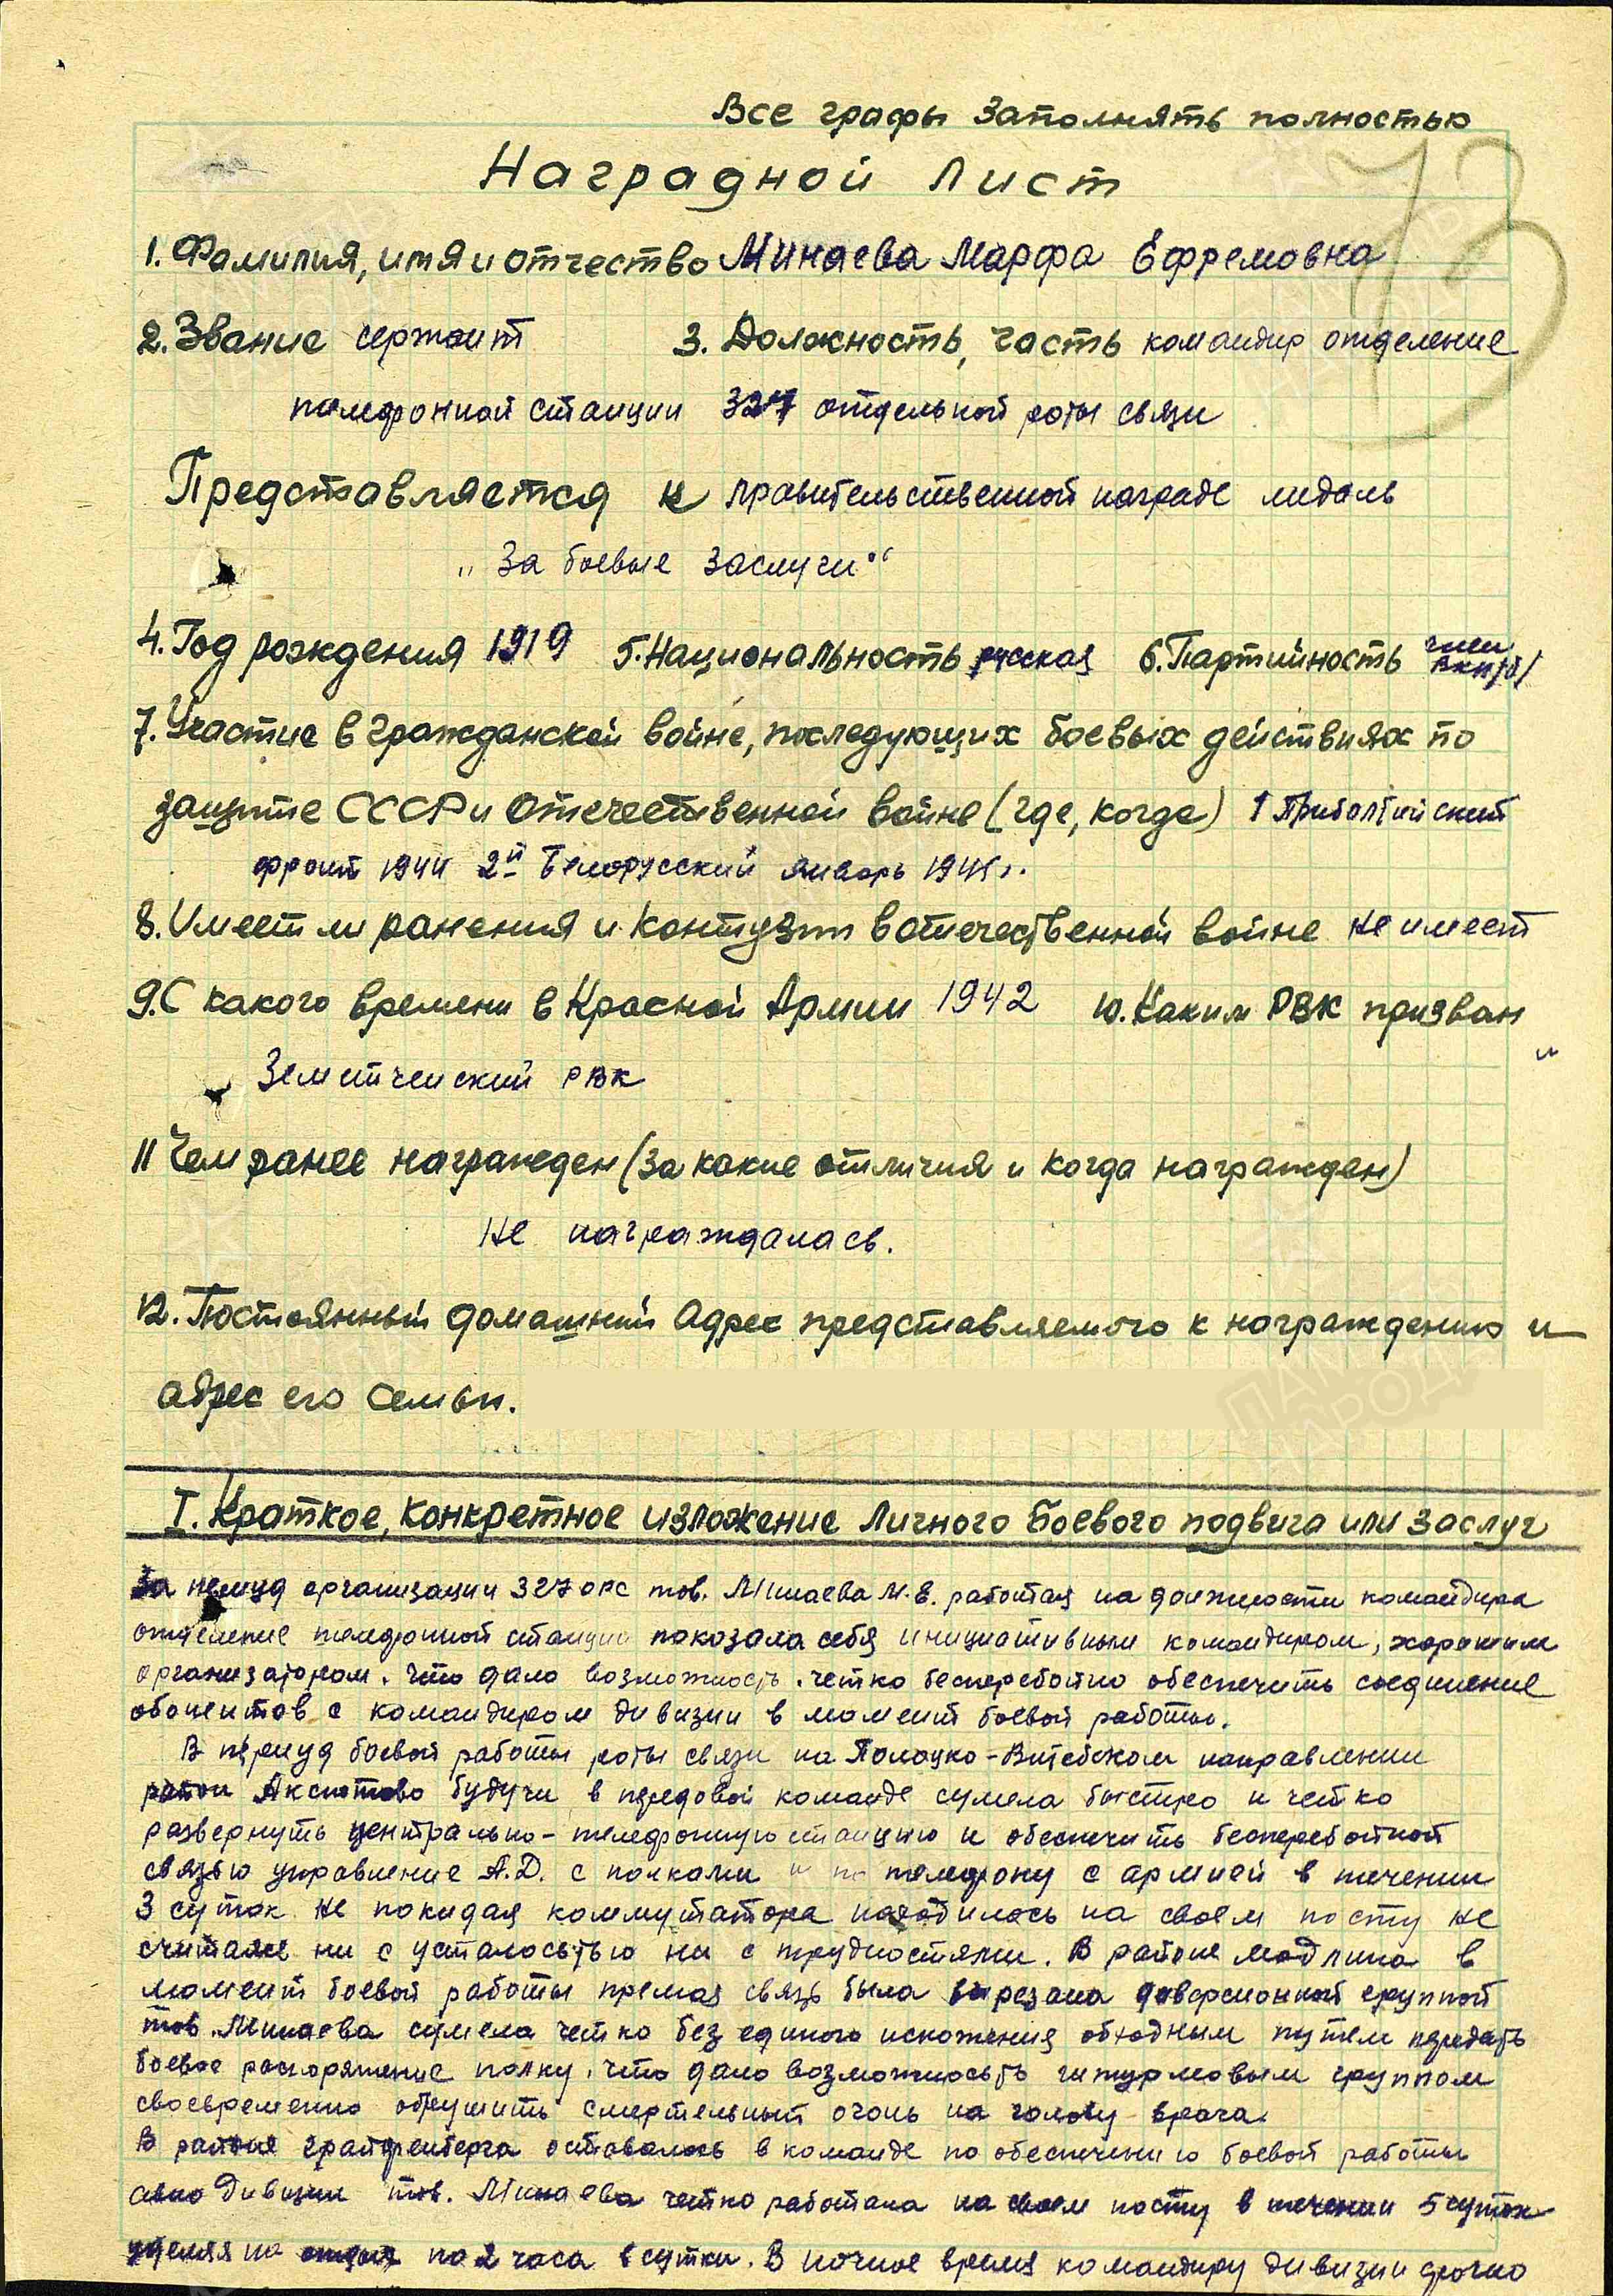 Все графы заполнять полностью
73
Наградной лист
1. Фамилия, имя и отчество Минаева Марфа Ефремовна
2. Звание сержант 3. Должность, часть командир отделение
телефонной станции 327 отдельной роты связи
Представляется к правительственной награде медаль
„За боевые заслуги“
4. Год рождения 1919 5. Национальность русская 6. Партийность член ВКП/б/
7. Участие в гражданской войне, последующих боевых действиях по
защите СССР и отечественной войне (где, когда) 1 Прибалтийский
фронт 1944 2й Белорусский январь 1945г.
8. Имеет ли ранения и контузии в отечественной войне не имеет
9. С какого времени в Красной Армии 1942 10. Каким РВК призван
Земетченский РВК
11 Чем ранее награжден (за какие отличия и когда награжден)
Не награждалась.
12. Постоянный домашний адрес представляемого к награждению и
адрес его семьи.
I. Краткое, конкретное изложение личного боевого подвига или заслуг
За период организации 327 орс тов. Минаева М.Е. работая на должности командира
отделение телефонной станции показала себя инициативным командиром, хорошим
организатором. Что дало возможность четко бесперебойно обеспечить соединение
абонентов с командиром дивизии в момент боевой работы.
В период боевой работы роты связи на Полоцко-Витебском направлении
район Аксютово будучи в передовой команде сумела быстро и четко
развернуть центрально-телефонную станцию и обеспечить бесперебойной
связью управление А.Д. с полками и по телефону с армией в течении
3 суток не покидая коммутатора находилась на своем посту не
считаясь ни с усталосьтью ни с трудностями. В районе Модлина в
момент боевой работы прямая связь была вырезана диверсионной группой
тов. Минаева сумела четко без единого искажения обходным путем передать
боевое распоряжение полку, что дало возможносьть штурмовым группам
своевременно обрушить смертельный огонь на голову врага.
В районе Грайфенберга оставалась в команде по обеспечению боевой работы
авио дивизии тов. Минаева четко работала на своем посту в течении 5 суток
уделяя на отдых по 2 часа в сутки. В ночное время командиру дивизии срочно